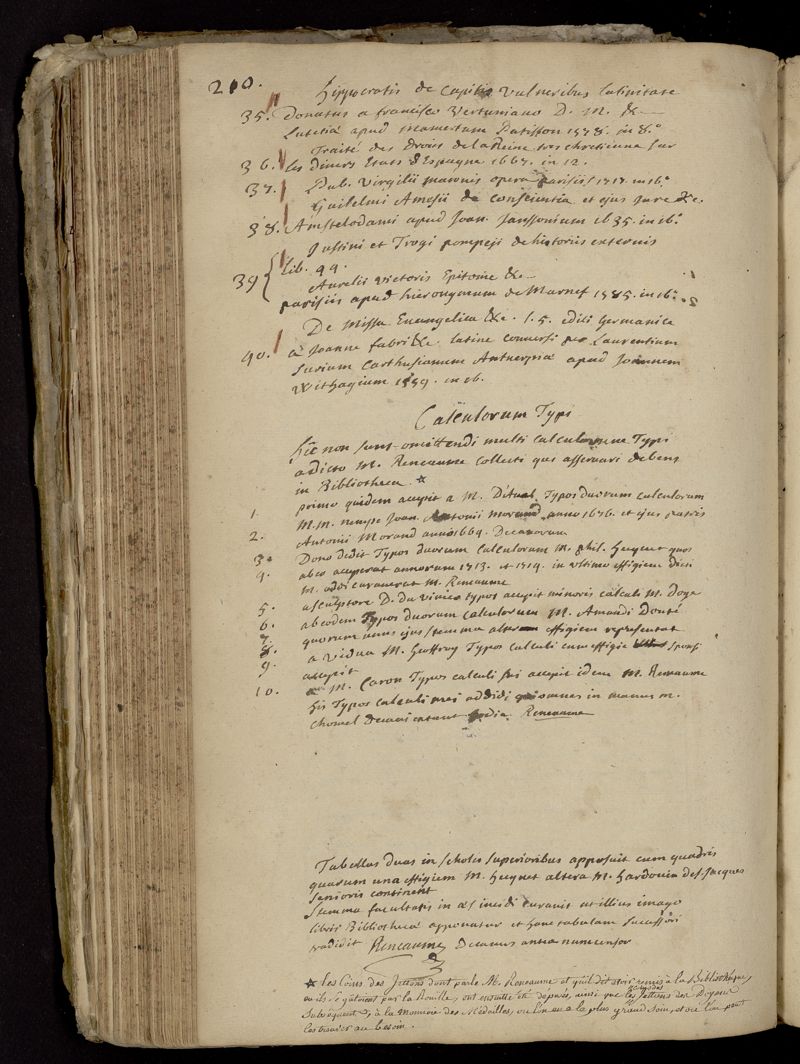 210.
Hippocratis de Capitis vulneribus latinitate
35. Donatus a francisco Vertuniano D. M. &c
Lutetiæ apud Mamertum Patisson 1578. in 8.°
Traité des Droits de la Reine tres chretienne sur
36. les divers Etats d'Espagne 1667. in 12.
37. Pub. Virgilii maronis opera parisiis 1717. in 16.°
Guilelmi Amesii de Conscientia et ejus jure &c.
38. Amstelodami apud Joan. Janssonium 1635. in 16.°
Justini et Trogi pompeji de historiis externis
39 { lib. 44.
Aurelii victoris Epitome &c
parisiis apud hieronymum de Marnef 1585. in 16.°
De Missa Evangelica &c. l. 5. editi Germanice
40. à Joanne fabri &c. latine conversi per Laurentium
Surium Carthusianum Antuerpiæ apud Joannem
Withagium 1559. in 16.
Calculorum Typi
Hic non sunt omittendi multi calculorum Typi
a dicto M. Reneaume collecti qui asservari debent
in Bibliotheca. ☆
primo quidem accepit a M. Typos duorum calculorum
1. M.M. nempe Joan. Antonii morand anno 1676. et ejus patris
2. Antonii Morand anni 1669. Decanorum
3. Dono dedit Typos duorum calculorum M. phil. Hecquet quos
4. ab eo acceperat annorum 1713. et 1714. in ultimo effigiem dicti
M. addi curaverat M. Reneaume
5. a sculptore D. du vivier typos accepit minoris calculi M. Doye
6. ab eodem Typos duorum calculorum M. Armandi Douté
7. quorum unus ejus stemma alter effigiem repræsentat
8. a vidua M. Geoffroy Typos calculi cum effigie sponsi
9. accepit
10. a M. Caron Typos calculi sui accepit idem M. Reneaume
his Typos calculi mei addidi qui omnes in manus M.
Chomel Decani Reneaume
Tabellas duas in scholis superioribus apposuit cum quadris
quarum una effigiem M. Hecquet altera M. Hardouin de St Jacques
senioris continent
Stemma facultatis in æs incidi curavit ut illius imago
libris Bibliothecæ apponatur et hanc tabulam successori
tradidit Reneaume Decanus antea nunc censor
☆ les Coins des Jettons dont parle M. Reneaume et qu'il dit avoir remis à la Bibliotheque,
ou ils se gâtoient par la Rouille, ont ensuite été déposés, ainsi que les coins des Jettons des Doyens
Subsequents, à la Monnoie des Médailles, où l'on en a le plus grand soin, et où l'on peut
les trouver au besoin.